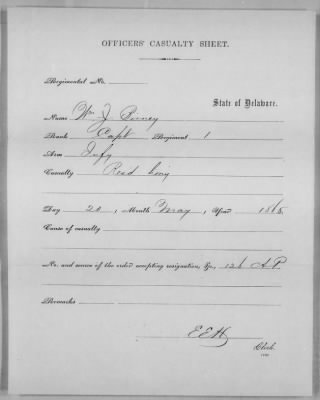 OFFICERS' CASUALTY SHEET.
Regimental No.
State of Delaware.
Name Wm J. Birney
Rank Capt Regiment 1
Arm Infy
Casualty Resd
Day 20, Month May, Year 1865.
Cause of casualty
No. and source of the order accepting resignation, &c., 126 A.P.
Remarks
E E H
Clerk.